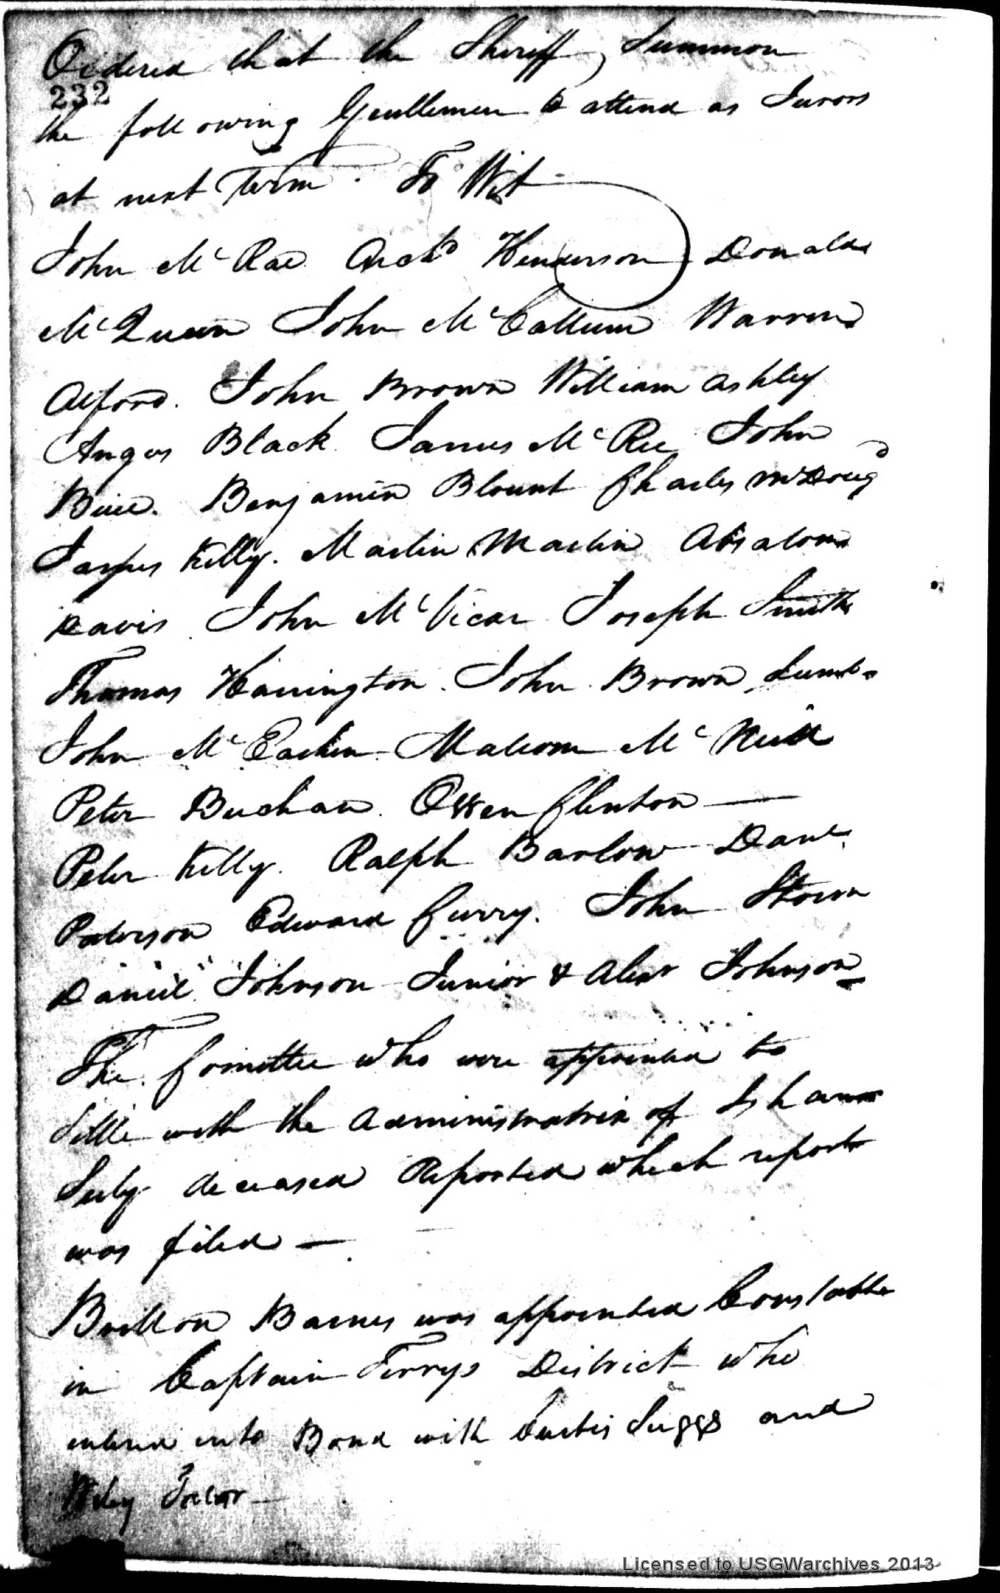 Ordered that the Sheriff Summon
232
the following Gentlemen to attend as Jurors
at next Term. To Wit
John McRae Archd Henderson Donald
McQueen John McCallum Warren
Alford. John Brown William Ashley
Angus Black James McRee John
Buie. Benjamin Blount Charles McDoug
James Kelly. Martin Martin Absalom
Davis John McVicar Joseph Smith
Thomas Harrington. John Brown Lumb
John McEachin Malcom McNeill
Peter Buchan Owen Clenton
Peter Kelly. Ralph Barlow Danl.
Paterson Edward Curry. John
Daniel Johnson Junior & Alexr Johnson
The Comittee who were appointed to
Settle with the Administratrix of Isham
deceased Reported which report
was filed
Barnes was appointed Constable
in Captain Terrys District who
entered into Bond with Curtis Suggs and
Wiley
Licensed to USGWarchives 2013